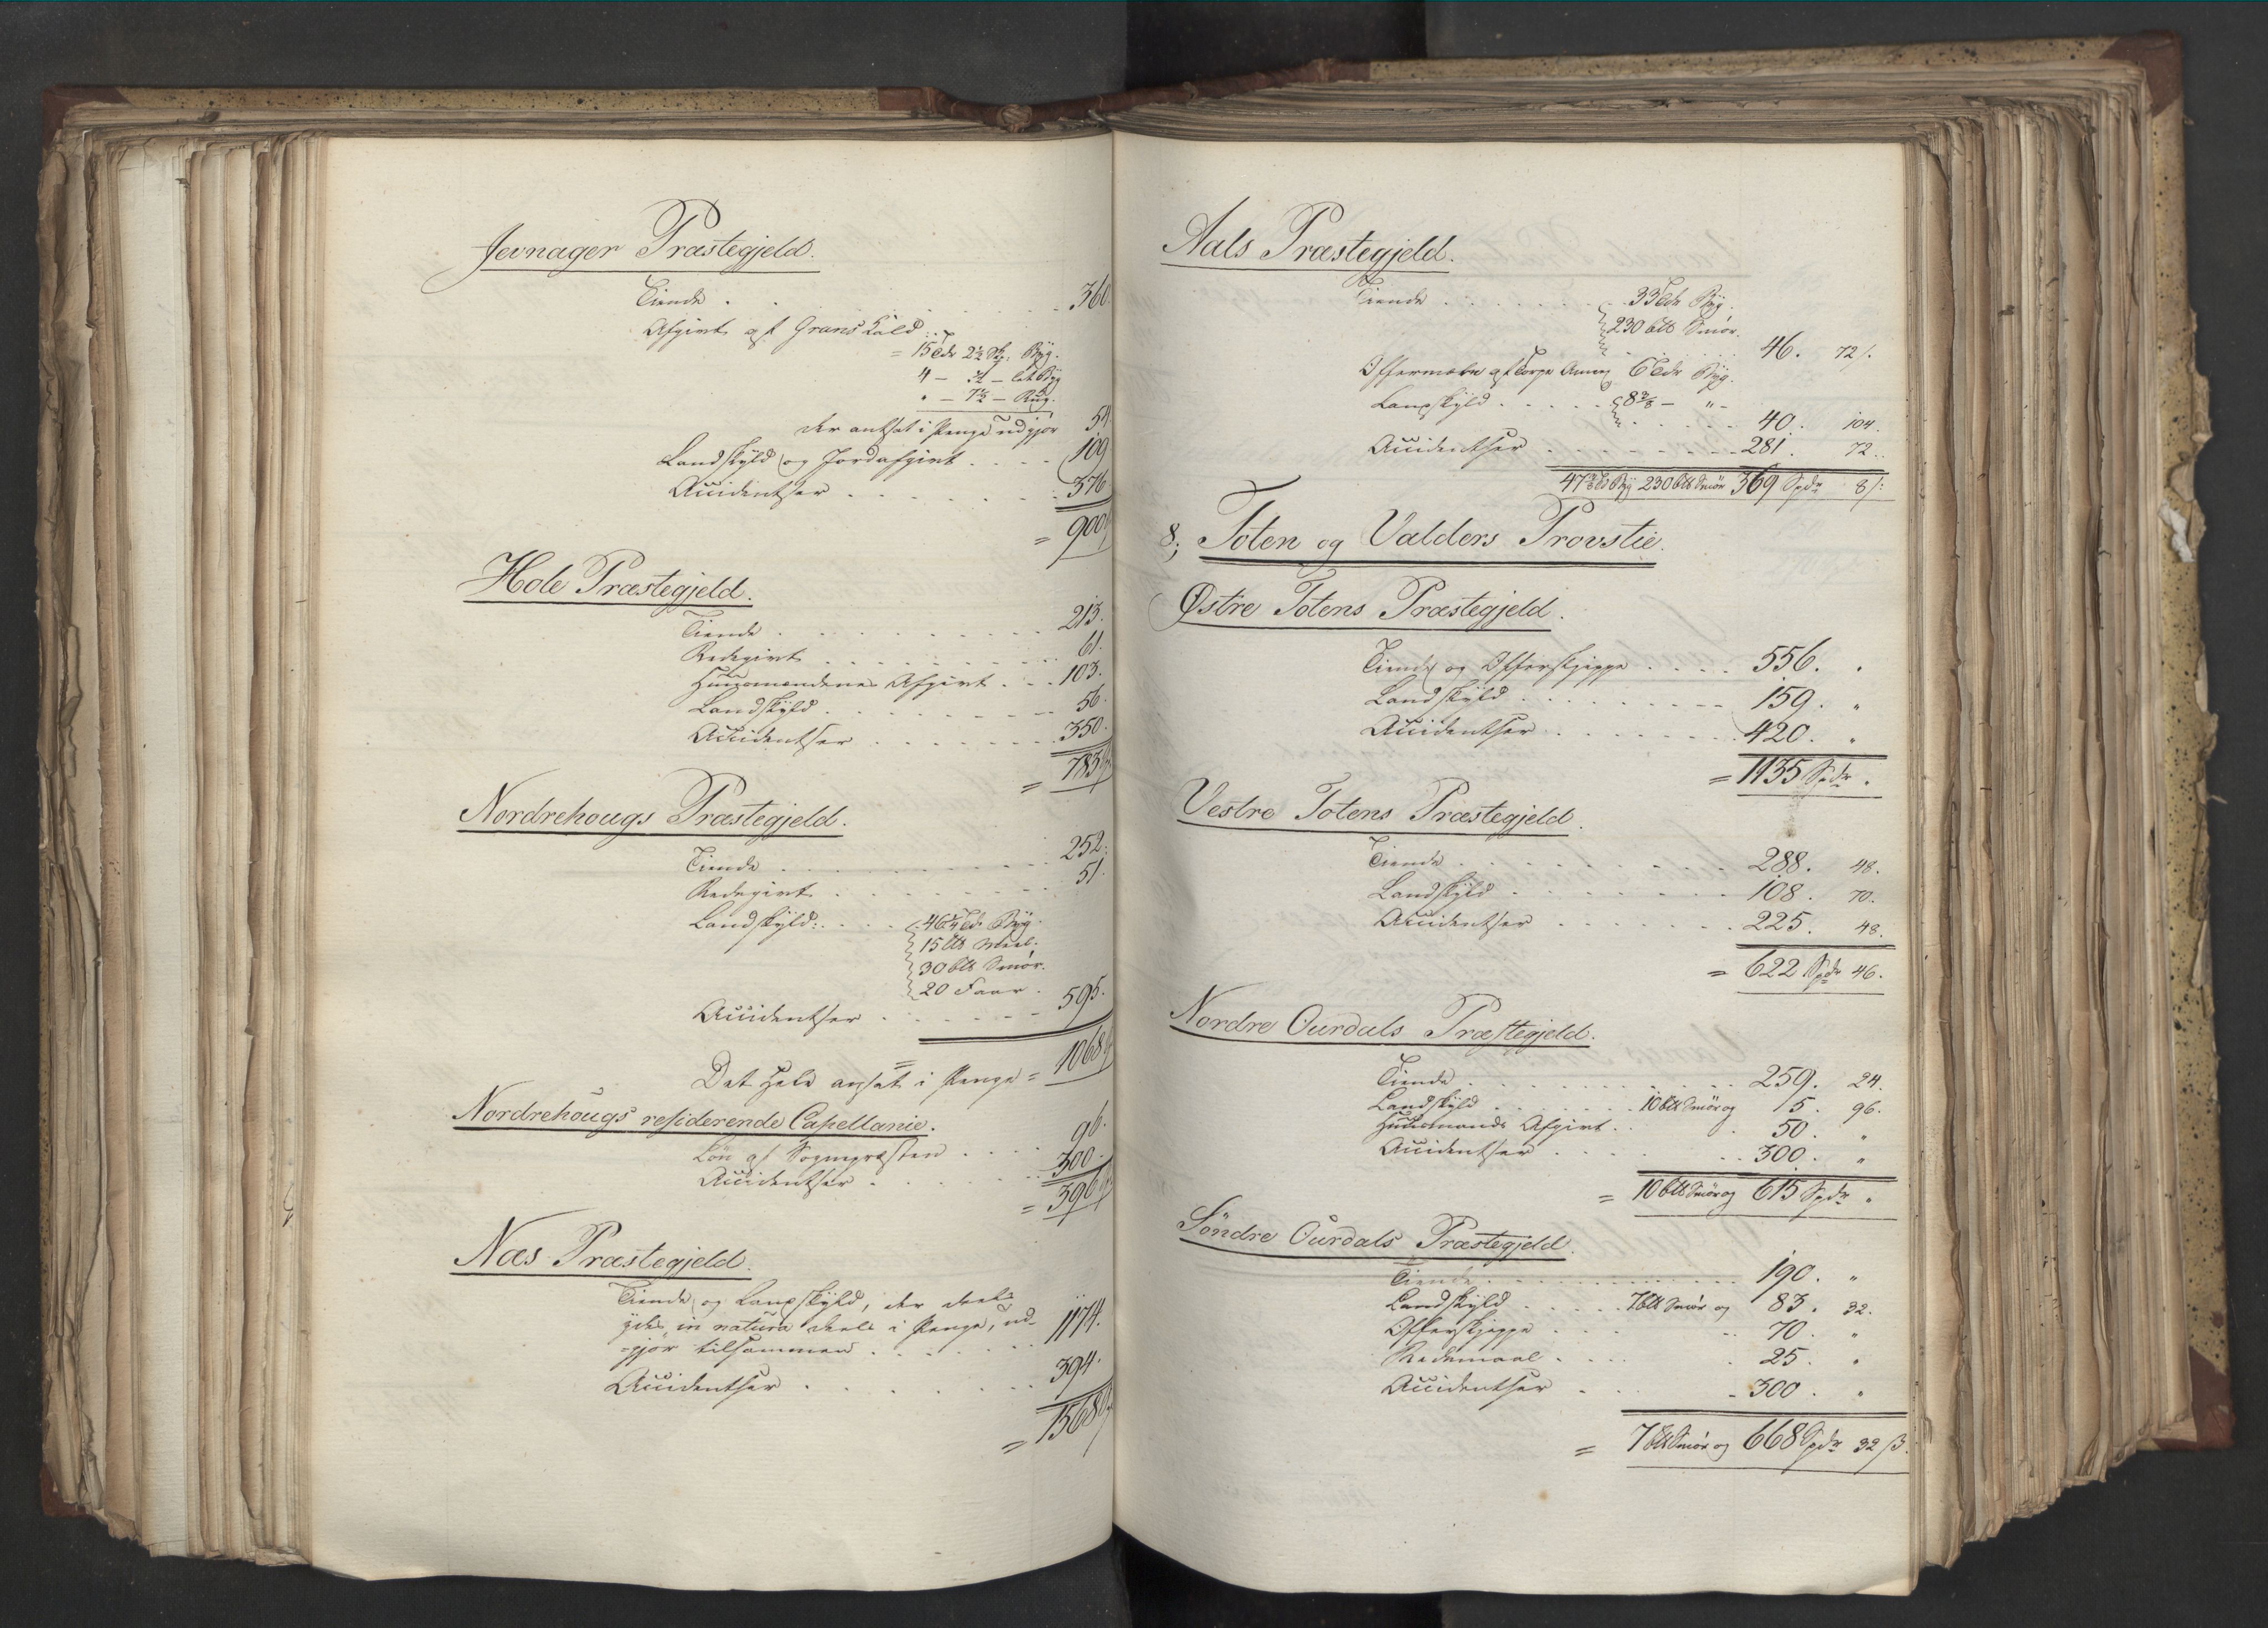 Jevnager Præstegjeld.
Tiende . . . . 360.
Afgivt af Grans Kald
= 15 Tdr 2½ Skp. Byg.
4 — ½ — let Byg
" — 7½ — Rug.
der ansat i Penge udgjör 54.
Landskyld og Jordafgivt . . . . 109.
Accidentser . . . . 376.
= 900
Hole Præstegjeld.
Tiende . . . . 213.
Redegivt . . . . 61.
Huusmændenes Afgivt . . . 103.
Landskyld . . . . 56.
Accidentser . . . . 350.
= 783
Nordrehougs Præstegjeld.
Tiende . . . . 252.
Redegivt . . . . 51.
Landskyld: . . . . 46¼ Tdr Byg.
15 Meel.
30 Smör.
20 Faar.
Accidentser . . . . 595.
Det Hele ansat i Penge = 1068
Nordrehougs residerende Capellanie.
Lön af Sognepræsten . . . . 96.
Accidentser . . . . 300.
= 396
Næs Præstegjeld.
Tiende og Landskyld, der deels
ydes in natura deels i Penge, ud-
-gjør tilsammen . . . . 1174.
Accidentser . . . . 394.
= 1568
Aals Præstegjeld.
Tiende . . . . 35 Tdr Byg.
230 Smör.
46. 72/.
Offermæle af Torpe Annex 6 Tdr Byg.
Landskyld . . . . 8 — " —
40. 104.
Accidentser . . . . 281. 72.
47 Byg 230 Smör 369 Spdr 8/:
8; Toten og Valders Provstie.
Østre Totens Præstegjeld.
Tiende og Offerskjeppe . . . . 556. .
Landskyld . . . . 159. "
Accidentser . . . . 420. "
= 1135 Spdr .
Vestre Totens Præstegjeld.
Tiende . . . . 288. 48.
Landskyld . . . . 108. 70.
Accidentser . . . . 225. 48.
= 622 Spdr 46.
Nordre Ourdals Præstegjeld.
Tiende . . . . 259. 24.
Landskyld . . . . 10 Smör og 5. 96.
Huusmænds Afgivt . . 50. "
Accidentser . . . . 300. "
= 10 Smör og 615 Spdr "
Söndre Ourdals Præstegjeld.
Tiende . . . . 190. "
Landskyld . . . . 7 Smör og 83. 32.
Offerskjeppe . . . . 70. "
Redemaal . . . . 25. "
Accidentser . . . . 300. "
= 7 Smör og 668 Spdr 32 ß.